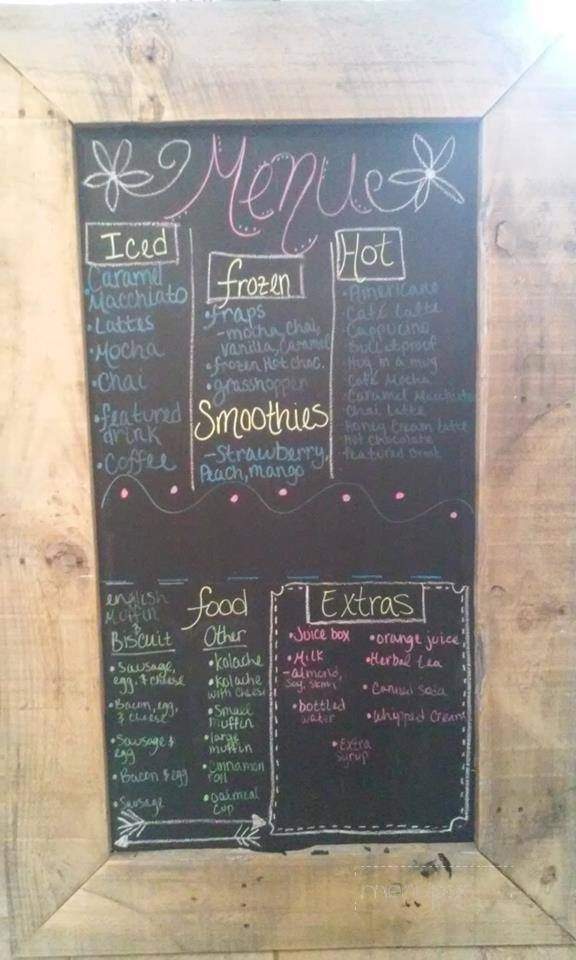 Menue
Iced
Caramel
Macchiato
•Lattes
•Mocha
•Chai
•featured
drink
•Coffee
frozen
•fraps
-mocha, chai,
vanilla, Caramel
•frozen Hot Choc.
•grasshopper
Smoothies
-Strawberry,
Peach, mango
Hot
•Americano
Café Latte
Cappucino
Bulletproof
Hug in a mug
Café Mocha
Caramel Macchiato
Chai Latte
Honey Cream Latte
Hot Chocolate
Featured Drink
food
english
Muffin
&
Biscuit
•Sausage,
egg, & cheese
•Bacon, egg,
& cheese
•Sausage &
egg
•Bacon & egg
•Sausage
Other
•kolache
•kolache
with cheese
•Small
muffin
•large
muffin
•Cinnamon
roll
•oatmeal
Cup
Extras
•Juice box
•Milk
-almond,
Soy, Skim
•bottled
water
•orange juice
•Herbal tea
•Canned Soda
•Whipped Cream
•Extra
Syrup